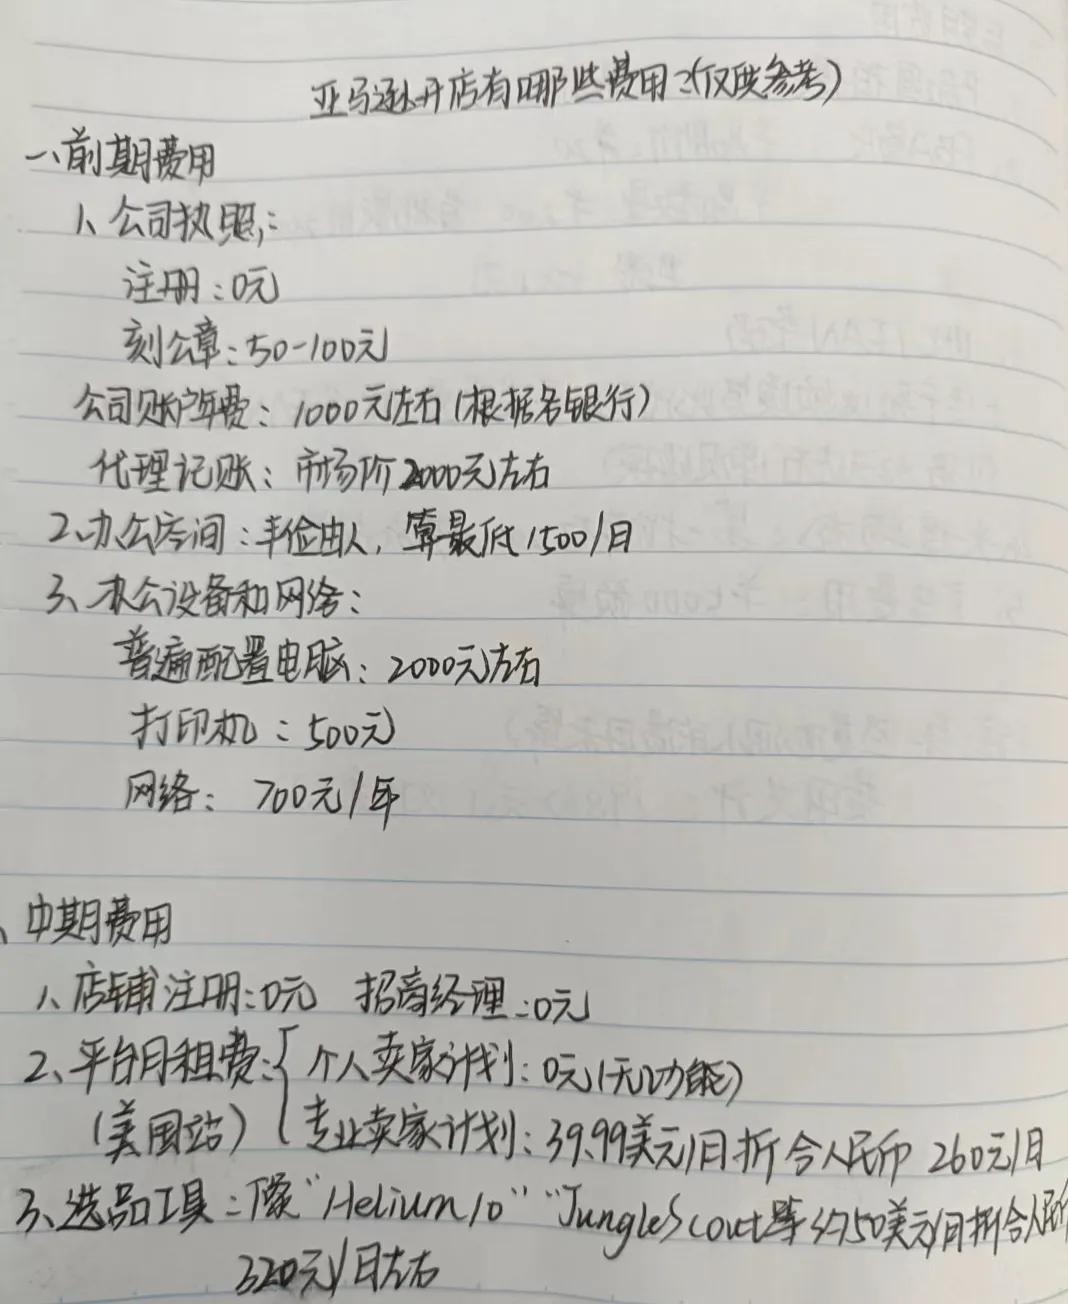 亚马逊开店有哪些费用?(仅供参考)
一、前期费用
1、公司执照:
注册:0元
刻公章:50-100元
公司账户年费:1000元左右(根据各银行)
代理记账:市场价2000元左右
2、办公房间:丰俭由人,算最低1500/月
3、办公设备和网络:
普遍配置电脑:2000元左右
打印机:500元
网络:700元/年
、中期费用
1、店铺注册:0元 招商经理:0元
2、平台月租费:{个人卖家计划:0元(无功能)
(美国站) 专业卖家计划:39.99美元/月折合人民币 260元/月
3、选品工具:像"Helium10""JungleScout等 50美元/月折合人民币
320元/月左右